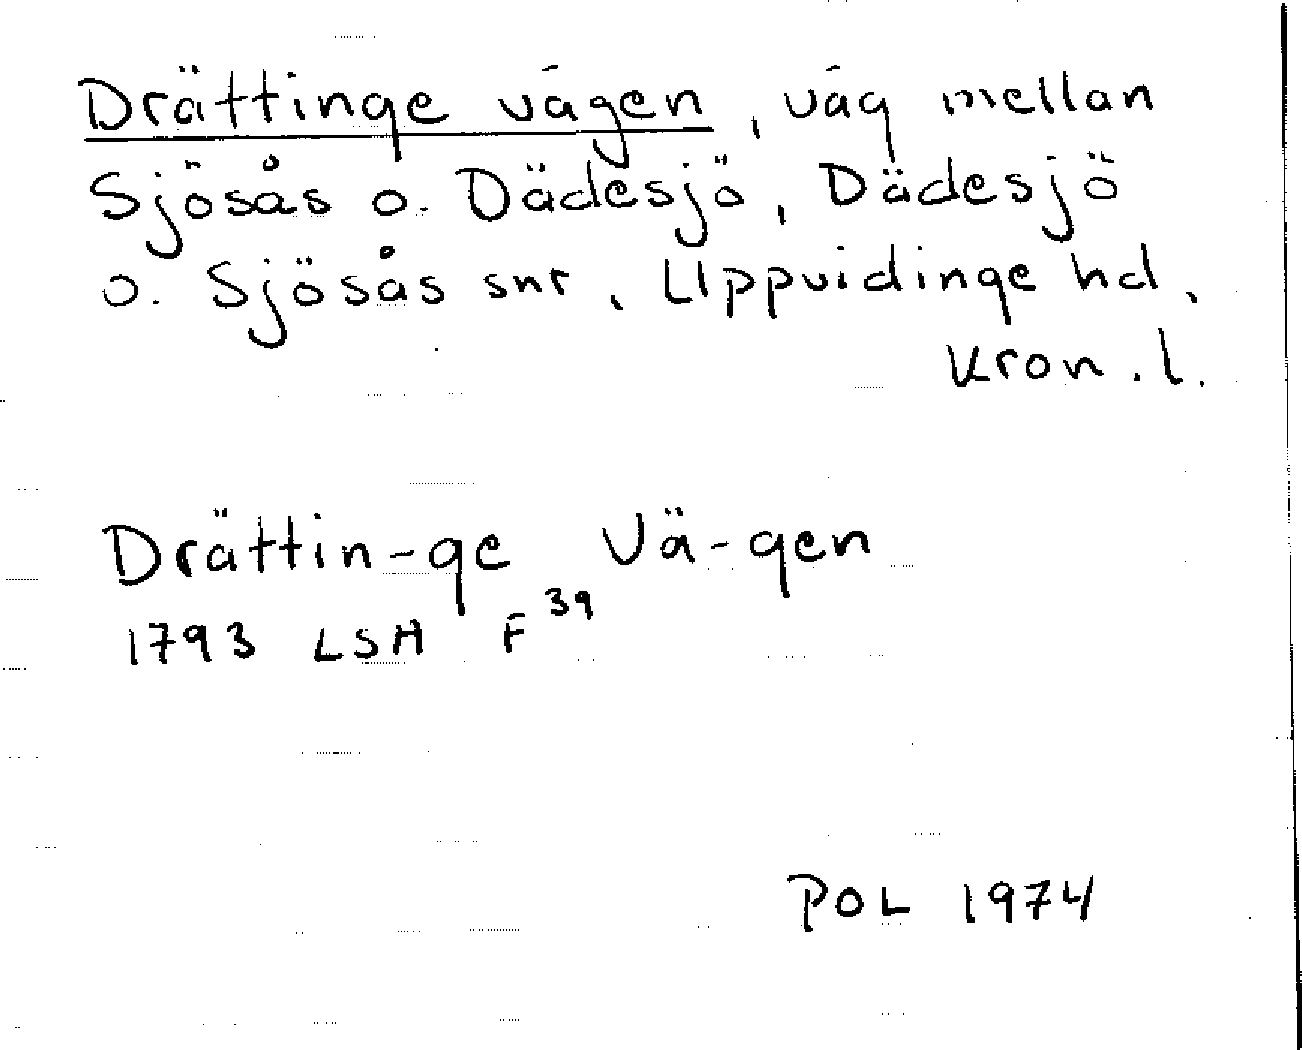 Drättinge vägen, väg mellan
Sjösås o. Dädesjö, Dädesjö
o. Sjösås snr, Uppvidinge hd,
Kron.l.
Drättin-ge Vä-gen
1793 LSH F 39
POL 1974